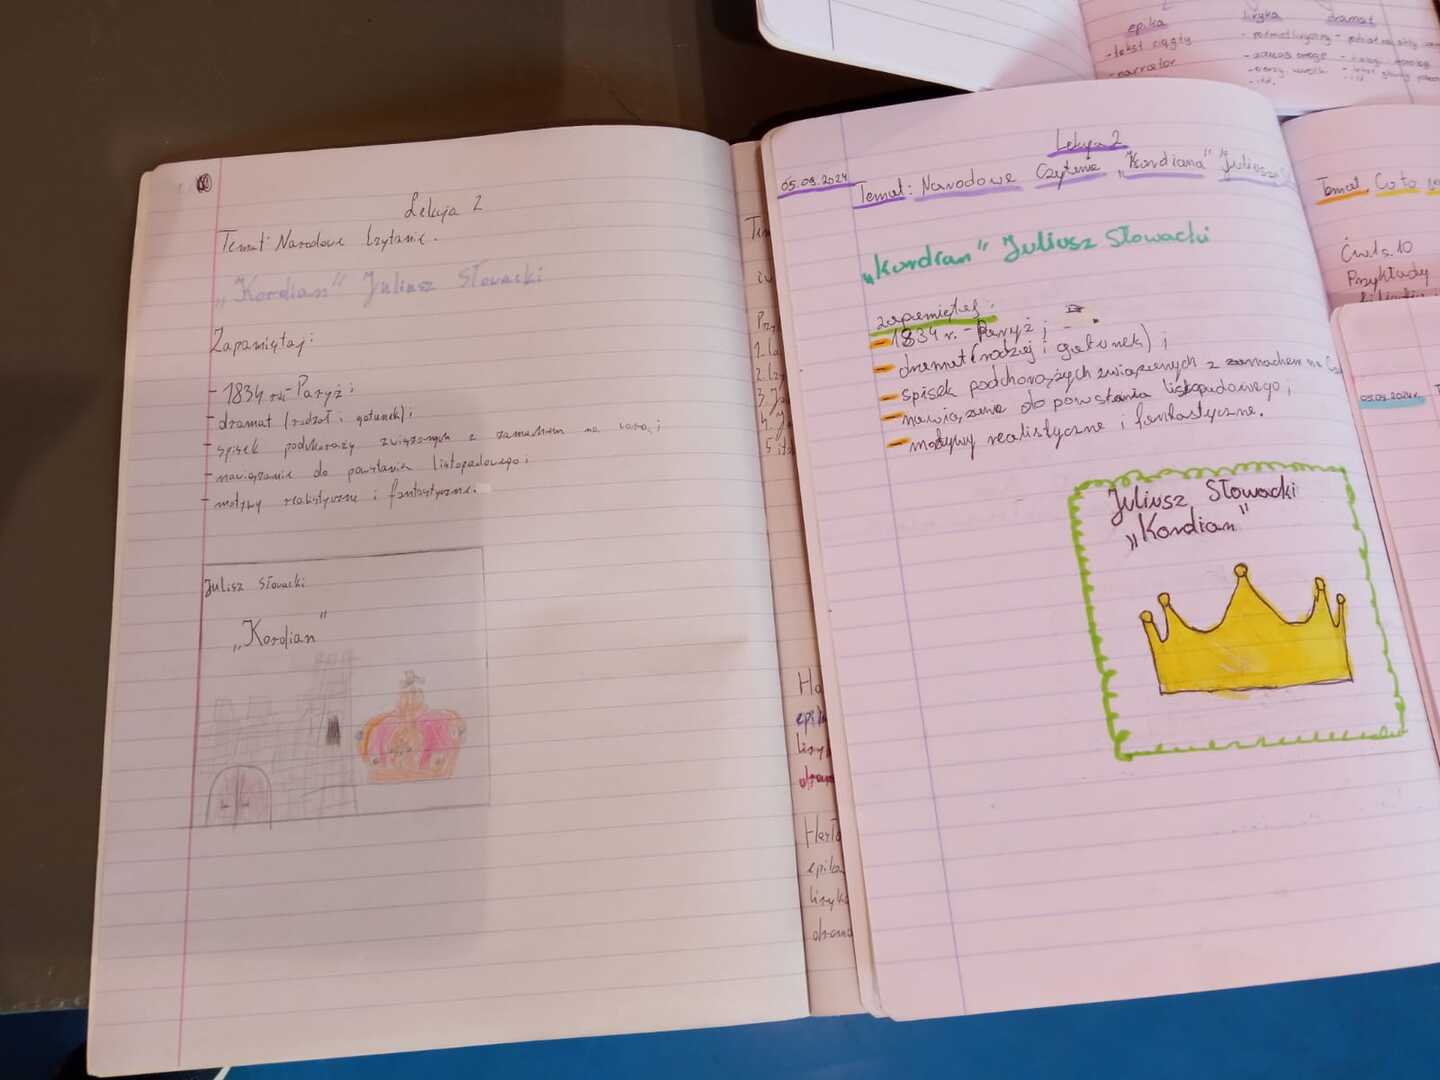 Lekcja 2
Temat: Narodowe Czytanie.
„Kordian" Juliusz Słowacki
Zapamiętaj:
- 1834 r. - Paryż;
- dramat (rodzaj i gatunek);
- spisek podchorąży związanych z zamachem na cara;
- nawiązanie do powstania listopadowego;
- motywy realistyczne i fantastyczne.
Julisz Słowacki
„Kordian"
Lekcja 2
05.09.2024
Temat: Narodowe Czytanie „Kordiana" Juliusz
„Kordian" Juliusz Słowacki
zapamiętaj:
- 1834 r. - Paryż;
- dramat (rodzaj i gatunek);
- spisek podchorążych związanych z zamachem na
- nawiązanie do powstania listopadowego;
- motywy realistyczne i fantastyczne.
Juliusz Słowacki
„Kordian"
epika liryka dramat
- tekst ciągły
- narrator
- podmiot liryczny
- itd.
Temat Co to
Ćw. 1 s. 10
Przykłady
05.09.2024r.